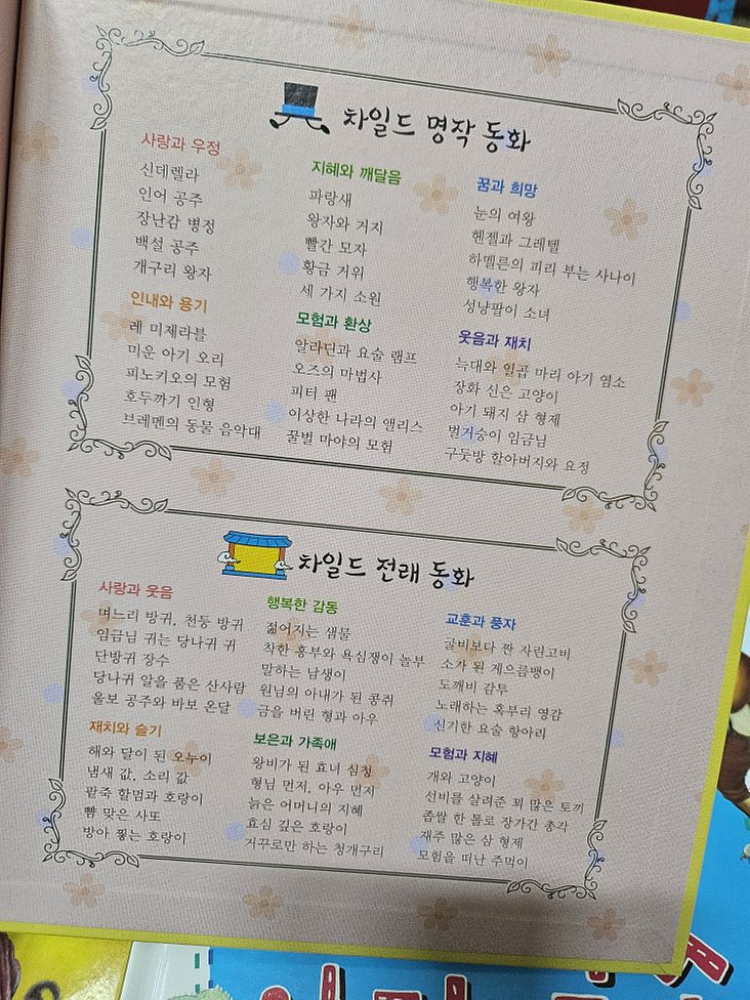 차일드 명작 동화
사랑과 우정
신데렐라
인어 공주
장난감 병정
백설 공주
개구리 왕자
지혜와 깨달음
파랑새
왕자와 거지
빨간 모자
황금 거위
세 가지 소원
꿈과 희망
눈의 여왕
헨젤과 그레텔
하멜른의 피리 부는 사나이
행복한 왕자
성냥팔이 소녀
인내와 용기
레 미제라블
미운 아기 오리
피노키오의 모험
호두까기 인형
브레멘의 동물 음악대
모험과 환상
알라딘과 요술 램프
오즈의 마법사
피터 팬
이상한 나라의 앨리스
꿀벌 마야의 모험
웃음과 재치
늑대와 일곱 마리 아기 염소
장화 신은 고양이
아기 돼지 삼 형제
벌거숭이 임금님
구둣방 할아버지와 요정
차일드 전래 동화
사랑과 웃음
며느리 방귀, 천둥 방귀
임금님 귀는 당나귀 귀
단방귀 장수
당나귀 알을 품은 산사람
울보 공주와 바보 온달
행복한 감동
젊어지는 샘물
착한 흥부와 욕심쟁이 놀부
말하는 남생이
원님의 아내가 된 콩쥐
금을 버린 형과 아우
교훈과 풍자
굴비보다 짠 자린고비
소가 된 게으름뱅이
도깨비 감투
노래하는 혹부리 영감
신기한 요술 항아리
재치와 슬기
해와 달이 된 오누이
냄새 값, 소리 값
팥죽 할멈과 호랑이
뺨 맞은 사또
방아 찧는 호랑이
보은과 가족애
왕비가 된 효녀 심청
형님 먼저, 아우 먼저
늙은 어머니의 지혜
효심 깊은 호랑이
거꾸로만 하는 청개구리
모험과 지혜
개와 고양이
선비를 살려준 꾀 많은 토끼
좁쌀 한 톨로 장가간 총각
재주 많은 삼 형제
모험을 떠난 주먹이